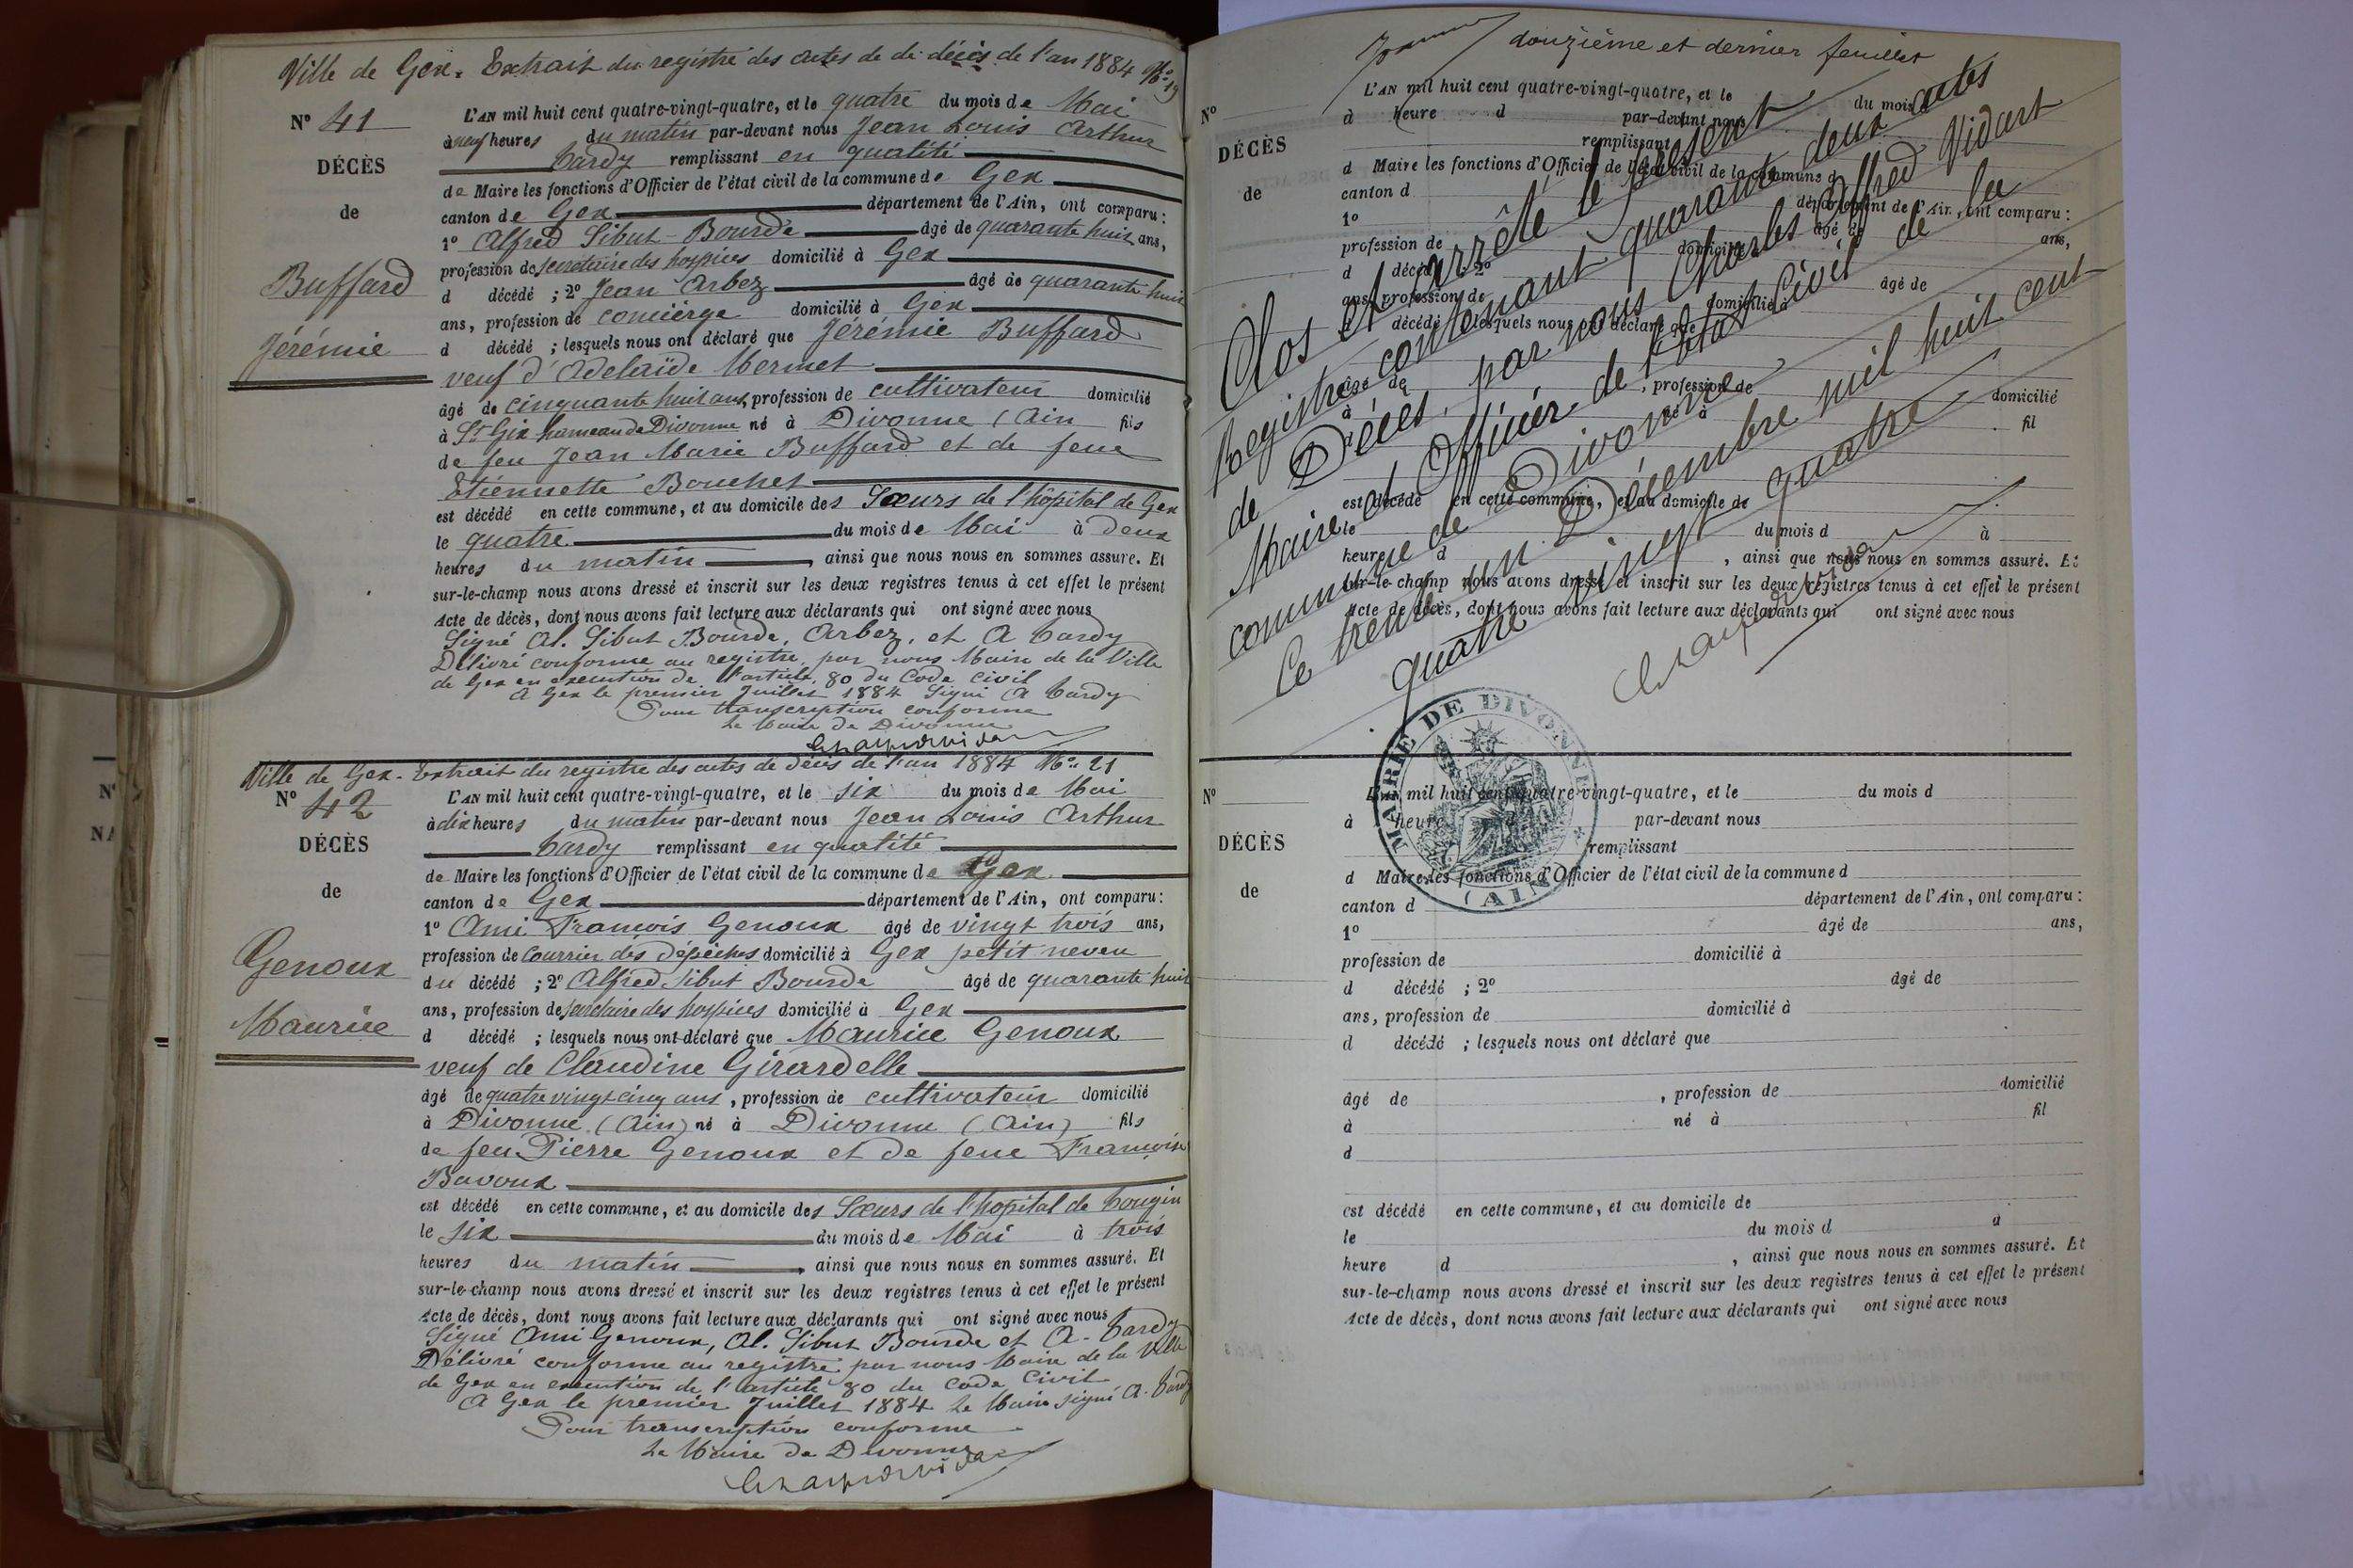 Ville de Gex. Extrait du registre des actes de de décès de l'an 1884 No 19
No 41
DÉCÈS
de
Buffard
Jérémie
L'AN mil huit cent quatre-vingt-quatre, et le quatre du mois de Mai
à neuf heures du matin par-devant nous Jean Louis Arthur
Tardy remplissant en qualité
de Maire les fonctions d'Officier de l'état civil de la commune de Gex
canton de Gex département de l'Ain, ont comparu :
1o Alfred Sibut-Bourde âgé de quarante huit ans,
profession de secrétaire des hospices domicilié à Gex
d décédé ; 2o Jean Arbez âgé de quarante huit
ans, profession de concierge domicilié à Gex
d décédé ; lesquels nous ont déclaré que Jérémie Buffard
veuf d'Adelaïde Mermet
âgé de cinquante huit ans, profession de cultivateur domicilié
à St Gix hameau de Divonne né à Divonne (Ain fils
de feu Jean Marie Buffard et de feue
Etiennette Bouchet
est décédé en cette commune, et au domicile des Sœurs de l'hôpital de Gex
le quatre du mois de Mai à deux
heures du matin, ainsi que nous nous en sommes assuré. Et
sur-le-champ nous avons dressé et inscrit sur les deux registres tenus à cet effet le présent
Acte de décès, dont nous avons fait lecture aux déclarants qui ont signé avec nous
Signé Al. Sibut Bourde, Arbez, et A Tardy
Délivré conforme au registre, par nous Maire de la Ville
de Gex en exécution de l'article 80 du Code Civil
A Gex le premier Juillet 1884 Signé A Tardy
Pour transcription conforme
Le Maire de Divonne
Ville de Gex. Extrait du registre des actes de décès de l'an 1884 No 21
No 42
DÉCÈS
de
Genoux
Maurice
L'AN mil huit cent quatre-vingt-quatre, et le six du mois de Mai
à dix heures du matin par-devant nous Jean Louis Arthur
Tardy remplissant en qualité
de Maire les fonctions d'Officier de l'état civil de la commune de Gex
canton de Gex département de l'Ain, ont comparu :
1o Ami François Genoux âgé de vingt trois ans,
profession de courrier des dépêches domicilié à Gex petit neveu
du décédé ; 2o Alfred Sibut Bourde âgé de quarante huit
ans, profession de secrétaire des hospices domicilié à Gex
d décédé ; lesquels nous ont déclaré que Maurice Genoux
veuf de Claudine Girardelle
âgé de quatre vingt cinq ans, profession de cultivateur domicilié
à Divonne (Ain) né à Divonne (Ain) fils
de feu Pierre Genoux et de feue Françoise
Bavoux
est décédé en cette commune, et au domicile des Sœurs de l'hopital de Tougin
le six du mois de Mai à trois
heures du matin, ainsi que nous nous en sommes assuré. Et
sur-le-champ nous avons dressé et inscrit sur les deux registres tenus à cet effet le présent
Acte de décès, dont nous avons fait lecture aux déclarants qui ont signé avec nous
Signé Ami Genoux, Al. Sibut Bourde et A. Tardy
Délivré conforme au registre par nous Maire de la Ville
de Gex en exécution de l'article 80 du Code Civil
A Gex le premier Juillet 1884 Le Maire signé A. Tardy
Pour transcription conforme
Le Maire de Divonne
douzième et dernier feuillet
No
DÉCÈS
de
L'AN mil huit cent quatre-vingt-quatre, et le du mois d
à heure d par-devant nous
remplissant
d Maire les fonctions d'Officier de l'état civil de la commune d
canton d département de l'Ain, ont comparu :
1o âgé de ans,
profession de domicilié à
d décédé ; 2o âgé de
ans, profession de domicilié à
d décédé ; lesquels nous ont déclaré que
âgé de , profession de domicilié
à né à fil
est décédé en cette commune, et au domicile de
le du mois d à
heure d , ainsi que nous nous en sommes assuré. Et
sur-le-champ nous avons dressé et inscrit sur les deux registres tenus à cet effet le présent
Acte de décès, dont nous avons fait lecture aux déclarants qui ont signé avec nous
Clos et arrêté le présent
Registre contenant quarante deux actes
de Décès, par nous Charles Alfred Vidart
Maire et Officier de l'Etat Civil de la
commune de Divonne,
Ce trente un Décembre mil huit cent
quatre vingt quatre
MAIRIE DE DIVONNE
(AIN)
No
DÉCÈS
de
L'AN mil huit cent quatre-vingt-quatre, et le du mois d
à heure d par-devant nous
remplissant
d Maire les fonctions d'Officier de l'état civil de la commune d
canton d département de l'Ain, ont comparu :
1o âgé de ans,
profession de domicilié à
d décédé ; 2o âgé de
ans, profession de domicilié à
d décédé ; lesquels nous ont déclaré que
âgé de , profession de domicilié
à né à fil
d
est décédé en cette commune, et au domicile de
le du mois d à
heure d , ainsi que nous nous en sommes assuré. Et
sur-le-champ nous avons dressé et inscrit sur les deux registres tenus à cet effet le présent
Acte de décès, dont nous avons fait lecture aux déclarants qui ont signé avec nous